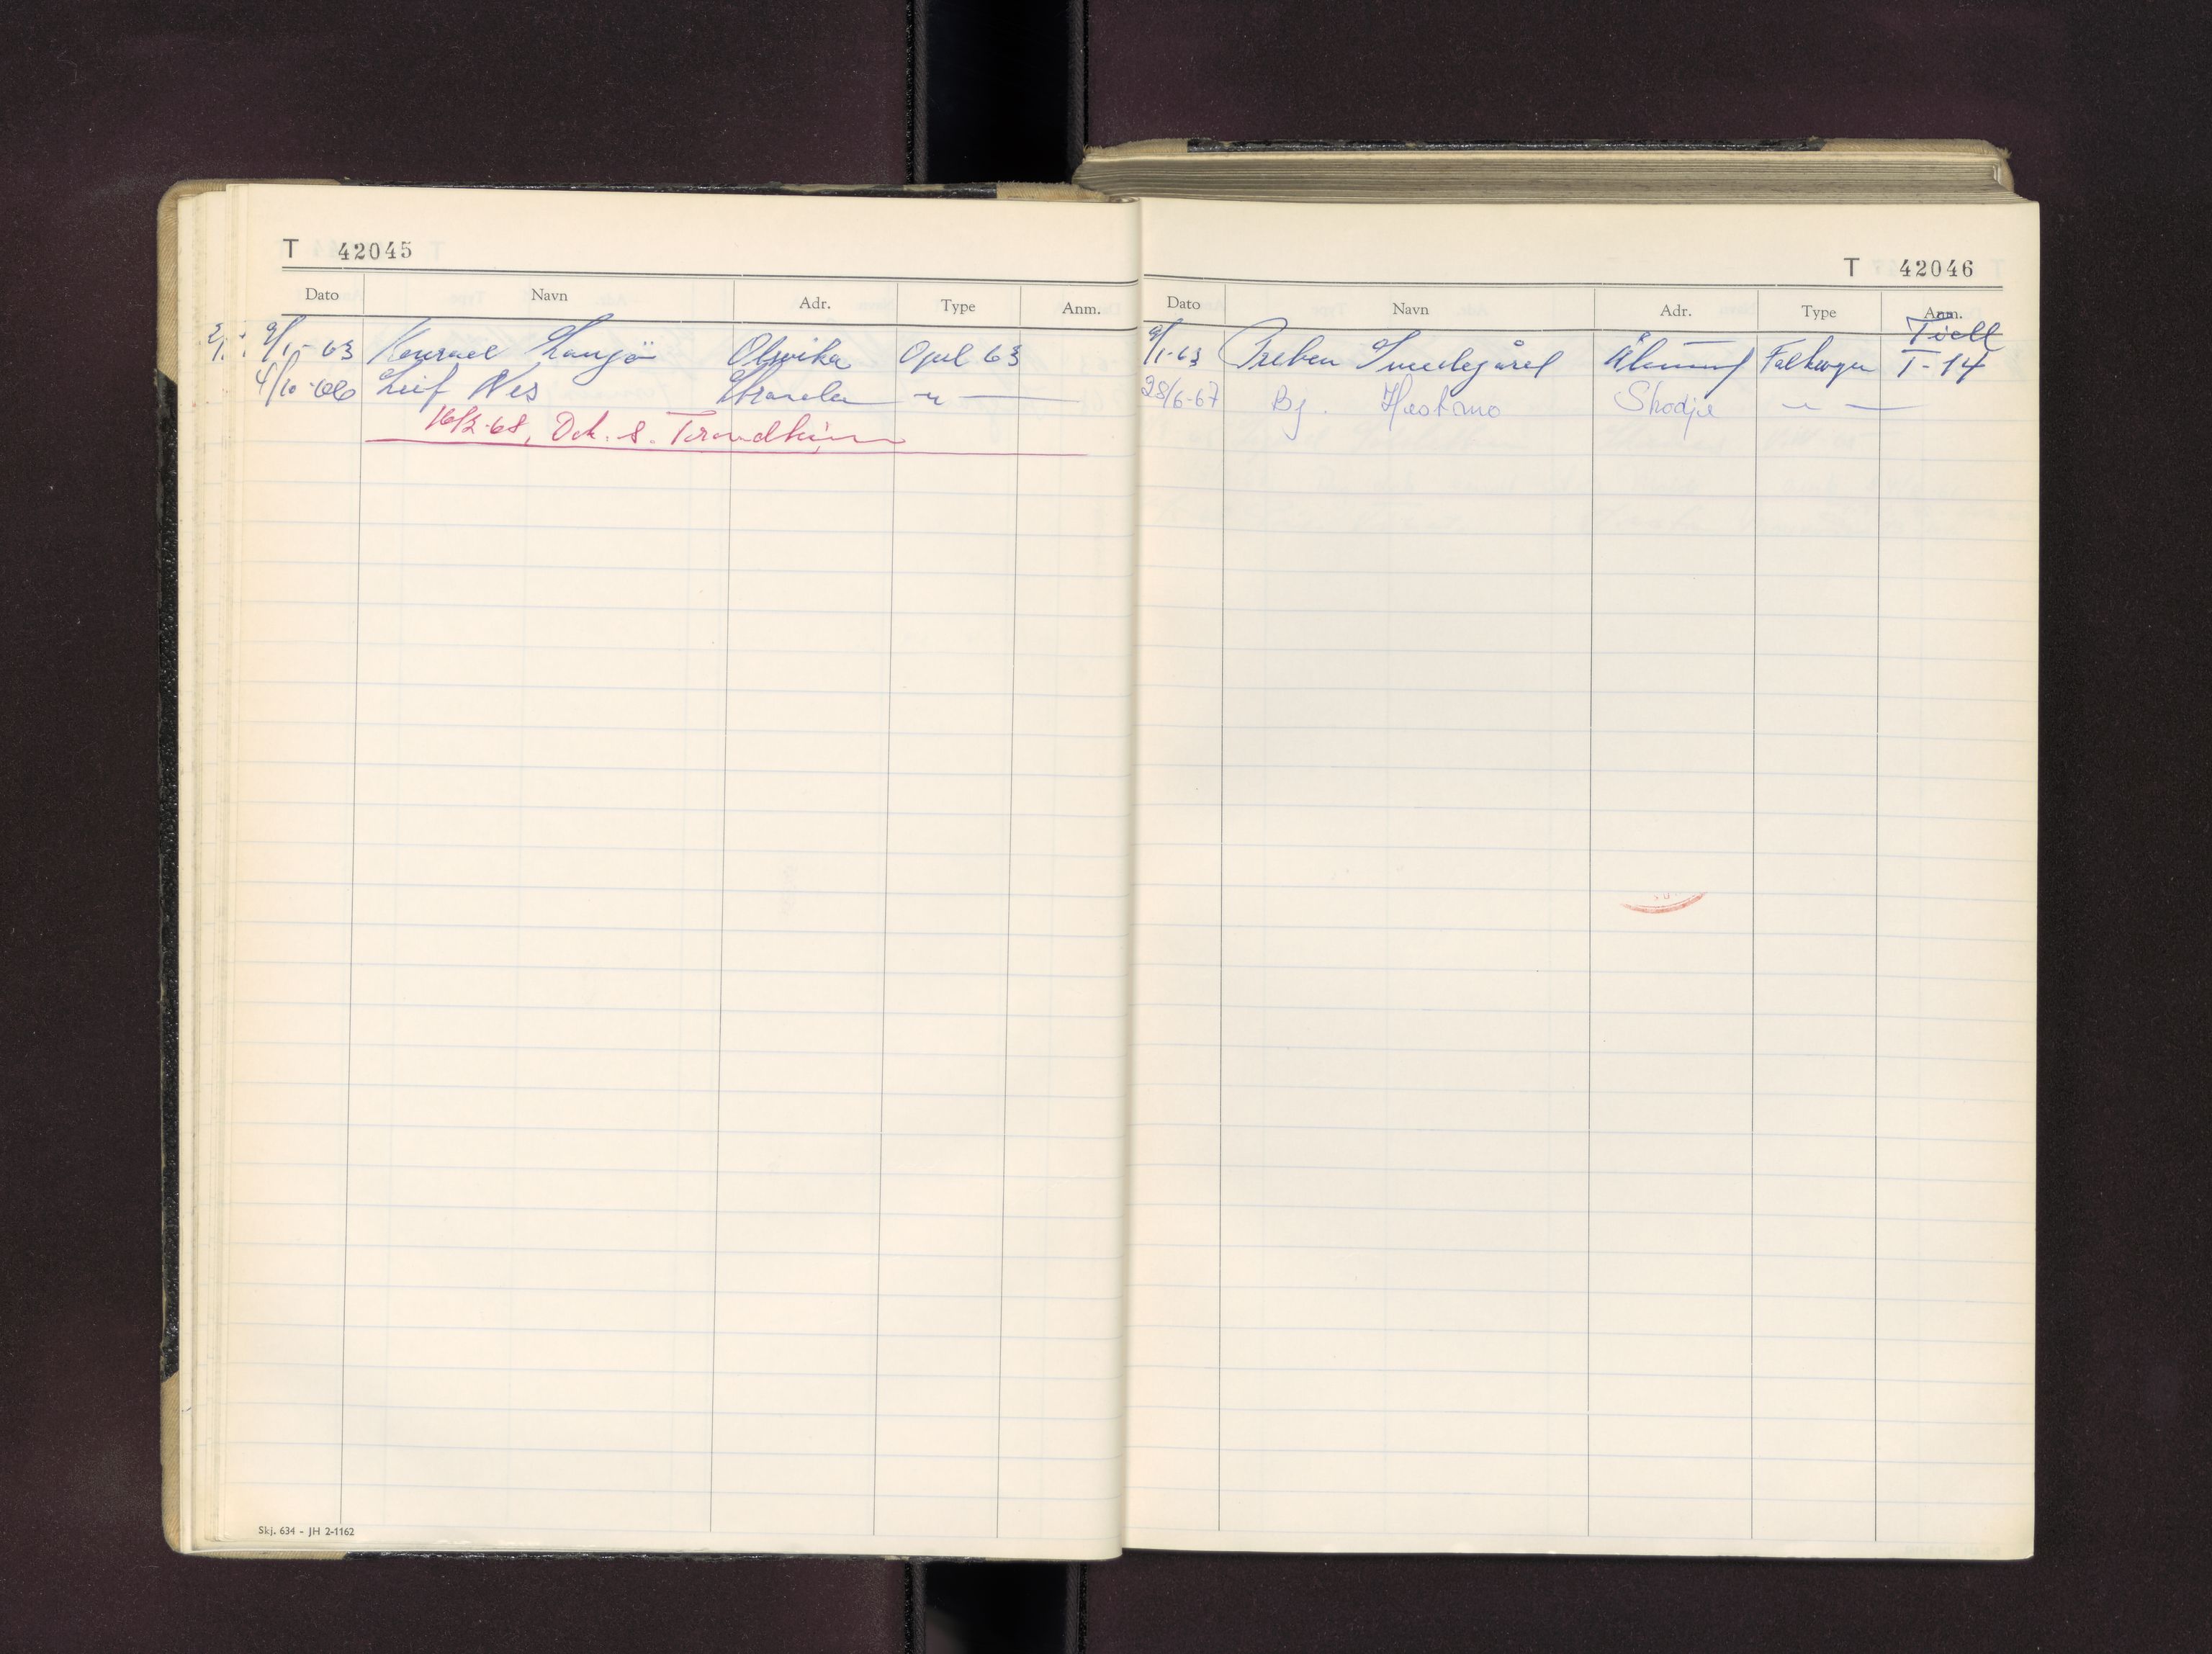 T 42045
Dato Navn Adr. Type Anm.
9/1-63 Konrael Langjö Olsvika Opel 63
4/10-66 Leif Nes Stranda - " -
16/2-68, Dek. s. Trondheim
Skj. 634 - JH 2-1162
T 42046
Dato Navn Adr. Type Anm.
9/1-63 Preben Smedegård Ålesund Folkevogn T-14
28/6-67 Bj. Skodje - " -